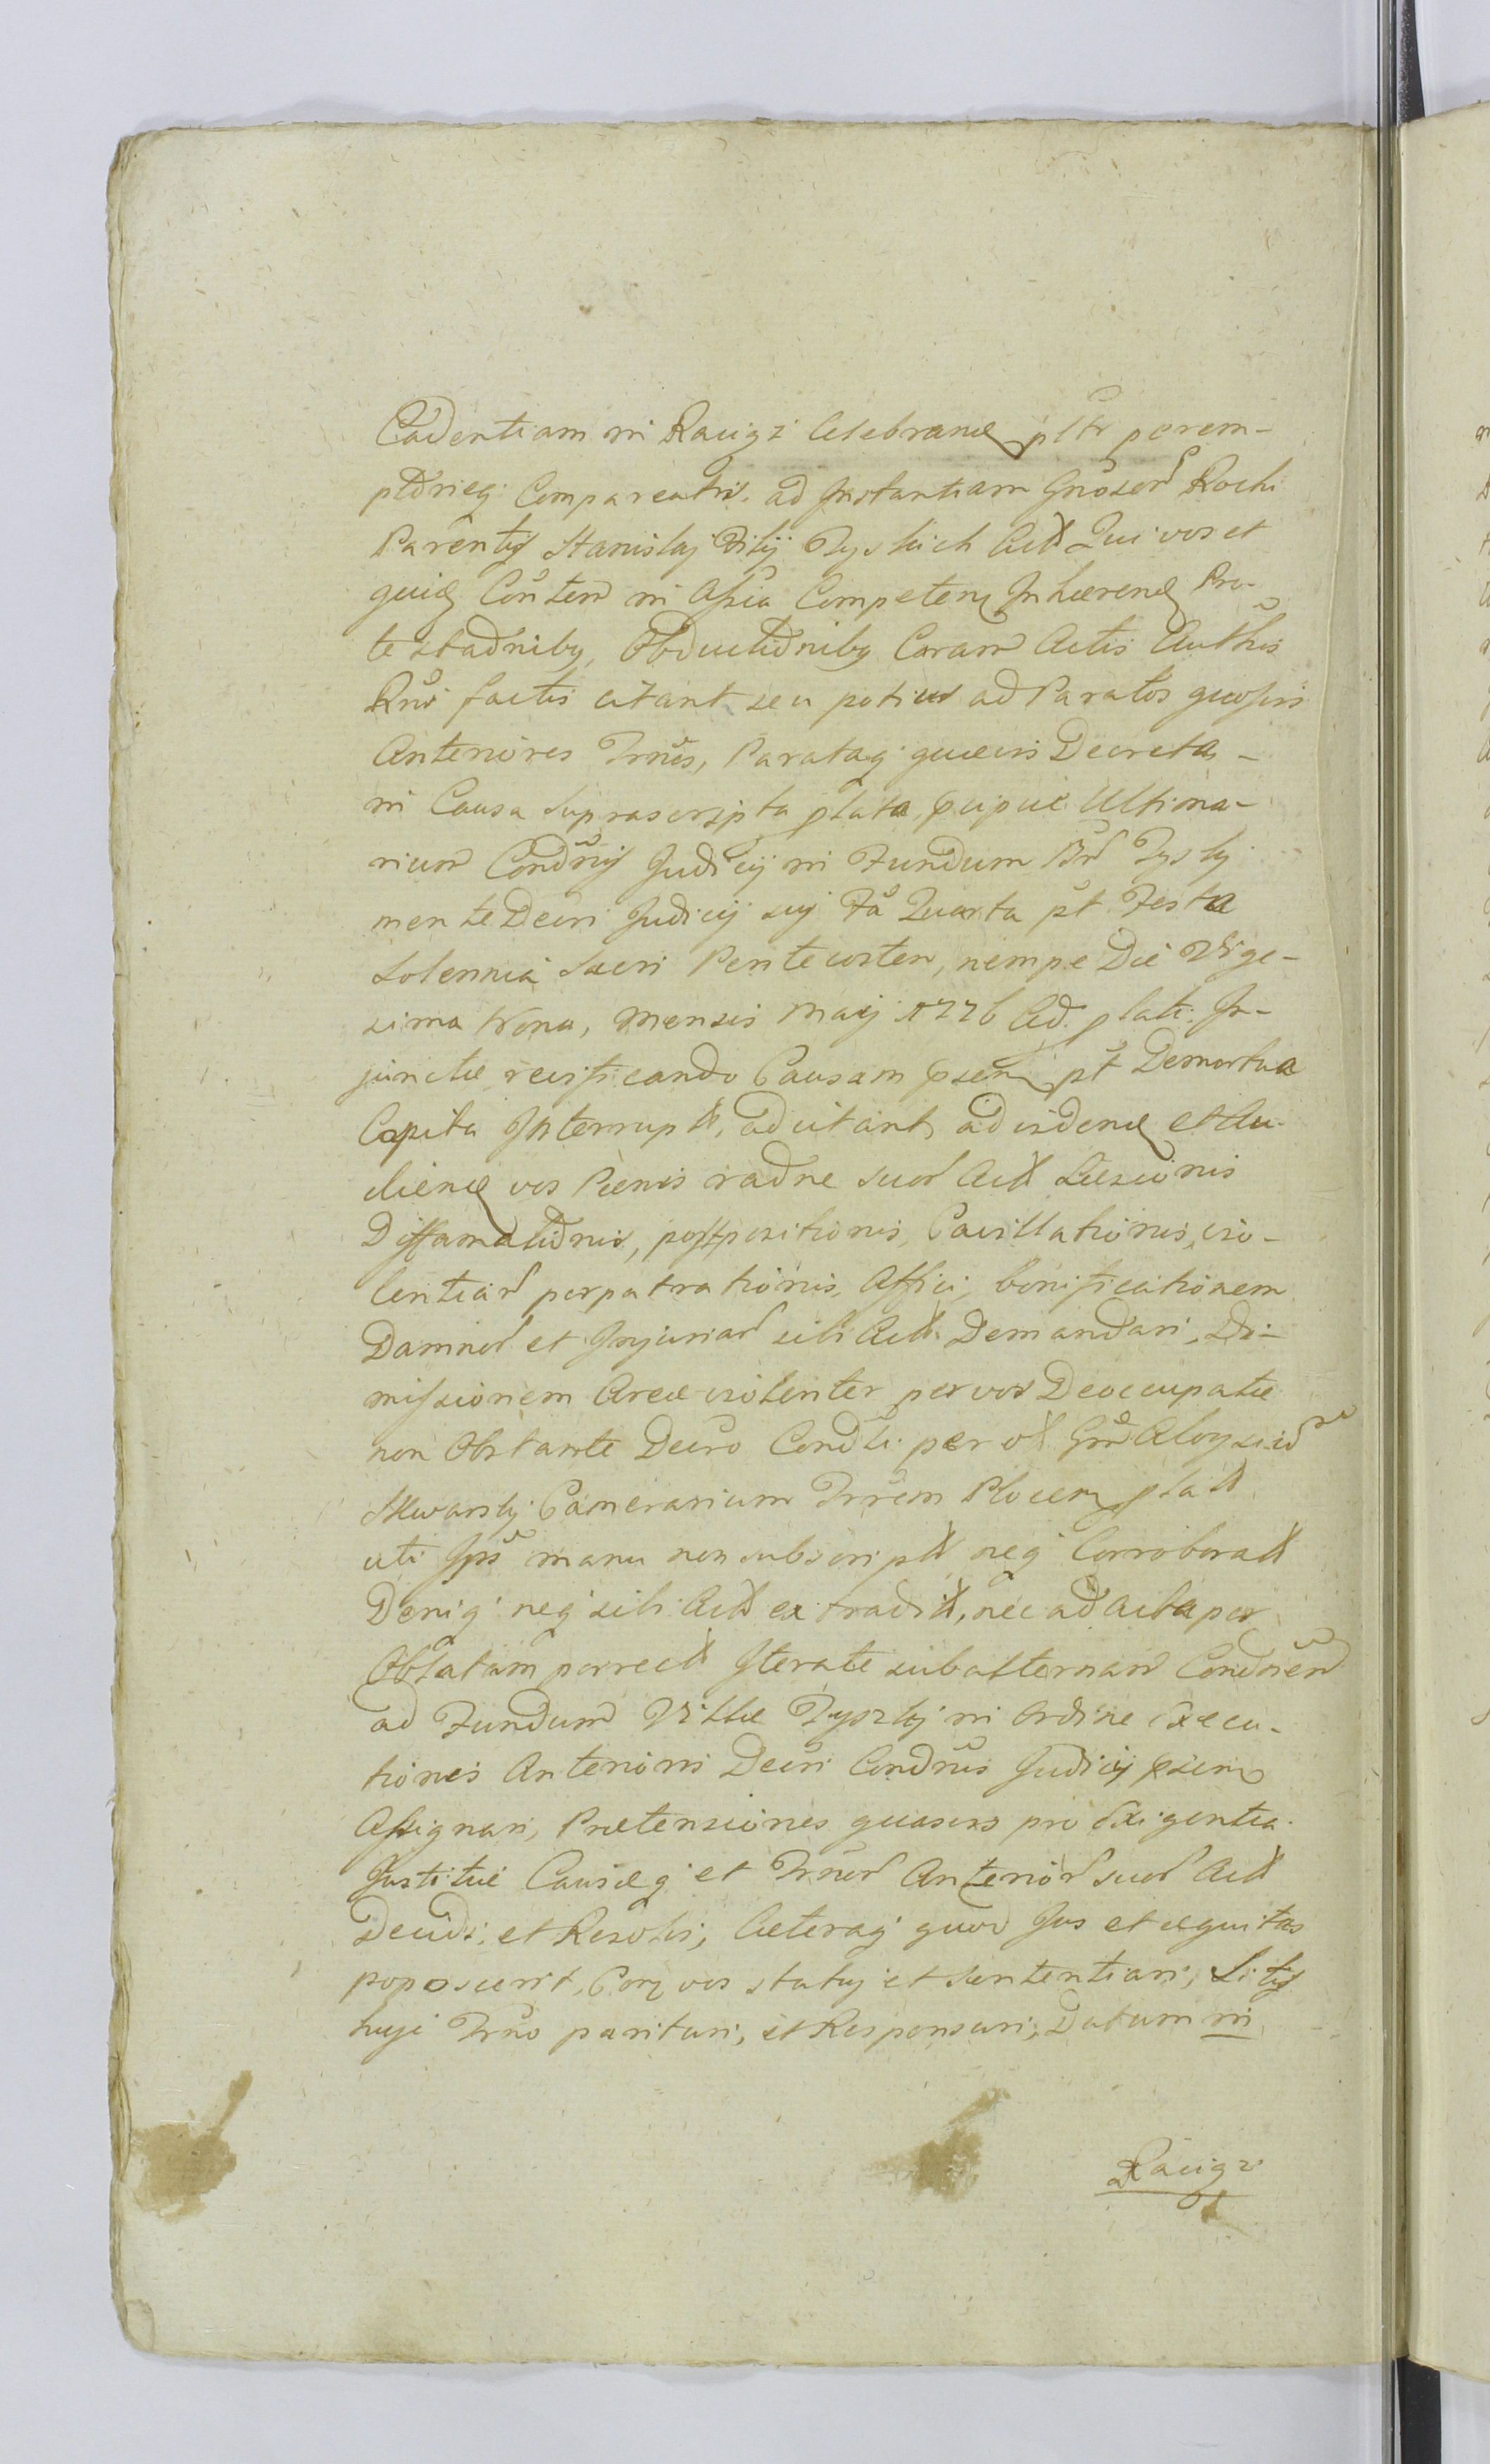 Cadentiam in Raciąz Celebrand pltr perem-
ptorieq: Compareatis. ad Instantiam Gnosor Rochi
Parentis Stanislaj Filij Tyskich Act Qui vos et
Conten in Competen Inhærend Pro-
testaonibq, Obductionibq Coram Actis Authis
factis citant seu potius ad Paratos quosvis
Anteriores Trnos, Parataq quævis Decreta
in Causa Suprascripta plata, Ultima-
rium Condnis Judicij in Fundum Tysky
mente Decri Judicij suj Fa Quarta pt Festa
Solennia Sacri Pentecosten, nempe Die Vige-
sima Nona, Mensis Maij 1776 Ad. plati In-
junctæ reassumando Causam psen pt Demortua
Capita Interrupt, adcitant ad vidend et Au-
diend vos Pænis raone suor Act Læsionis
Diffamationis, postpositionis, Cavillationis, vio-
lentiar perpatrationis, Affici, bonificationem
Damnor et Injuriar sibi Act Demandari, Di-
missionem Areæ violenter per vos Deoccupatæ
non Obstante Decro Condli per Aloysium
Skwarsky Camerarium Trrem Plocen plat
uti manu non subscript neq Corroborat
Deniq neq sibi Act extradit, nec ad acta per
Oblatam porrect Iterate subalternam Condnem
ad Fundum Villæ Tyszky in Ordine Execu-
tionis Anterioris Decri Condnis Judicij psen
Assignari, Prætensiones quasvis pro Exigentia
Justitiæ Causæq et Trnor Anterior suor Act
Decidi et Resolvi, Cæteraq quod Jus et æquitas
poposcerit, Coram vos statuj et Sententiari, Litis
huj Trno parituri, et Responsuri, Datum in
Raciąz